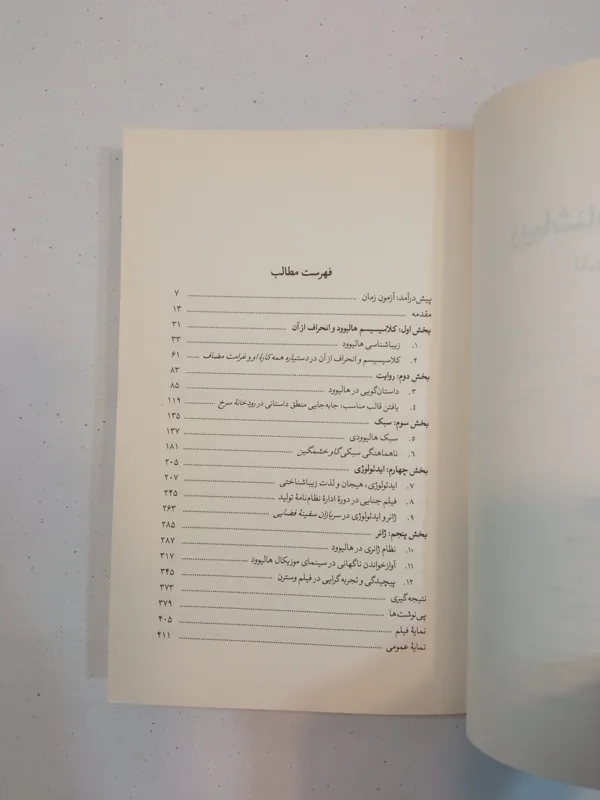 فهرست مطالب
پیش‌درآمد: آزمون زمان ۷
مقدمه ۱۳
بخش اول: کلاسیسیسم هالیوود و انحراف از آن ۳۱
۱. زیباشناسی هالیوود ۳۳
۲. کلاسیسیسم و انحراف از آن در دستیاره همه‌کارهٔ او و غرامت مضاف ۶۱
بخش دوم: روایت ۸۳
۳. داستان‌گویی در هالیوود ۸۵
۴. یافتن قالب مناسب: جابه‌جایی منطق داستانی در رودخانهٔ سرخ ۱۱۹
بخش سوم: سبک ۱۳۵
۵. سبک هالیوودی ۱۳۷
۶. ناهماهنگی سبکی گاو خشمگین ۱۸۱
بخش چهارم: ایدئولوژی ۲۰۵
۷. ایدئولوژی، هیجان و لذت زیباشناختی ۲۰۷
۸. فیلم جنایی در دورهٔ ادارهٔ نظام‌نامهٔ تولید ۲۴۵
۹. ژانر و ایدئولوژی در سربازان سفینهٔ فضایی ۲۶۳
بخش پنجم: ژانر ۲۸۵
۱۰. نظام ژانری در هالیوود ۲۸۷
۱۱. آوازخواندن ناگهانی در سینمای موزیکال هالیوود ۳۱۷
۱۲. پیچیدگی و تجربه‌گرایی در فیلم وسترن ۳۴۵
نتیجه‌گیری ۳۷۳
پی‌نوشت‌ها ۳۷۹
نمایهٔ فیلم ۴۰۵
نمایهٔ عمومی ۴۱۱